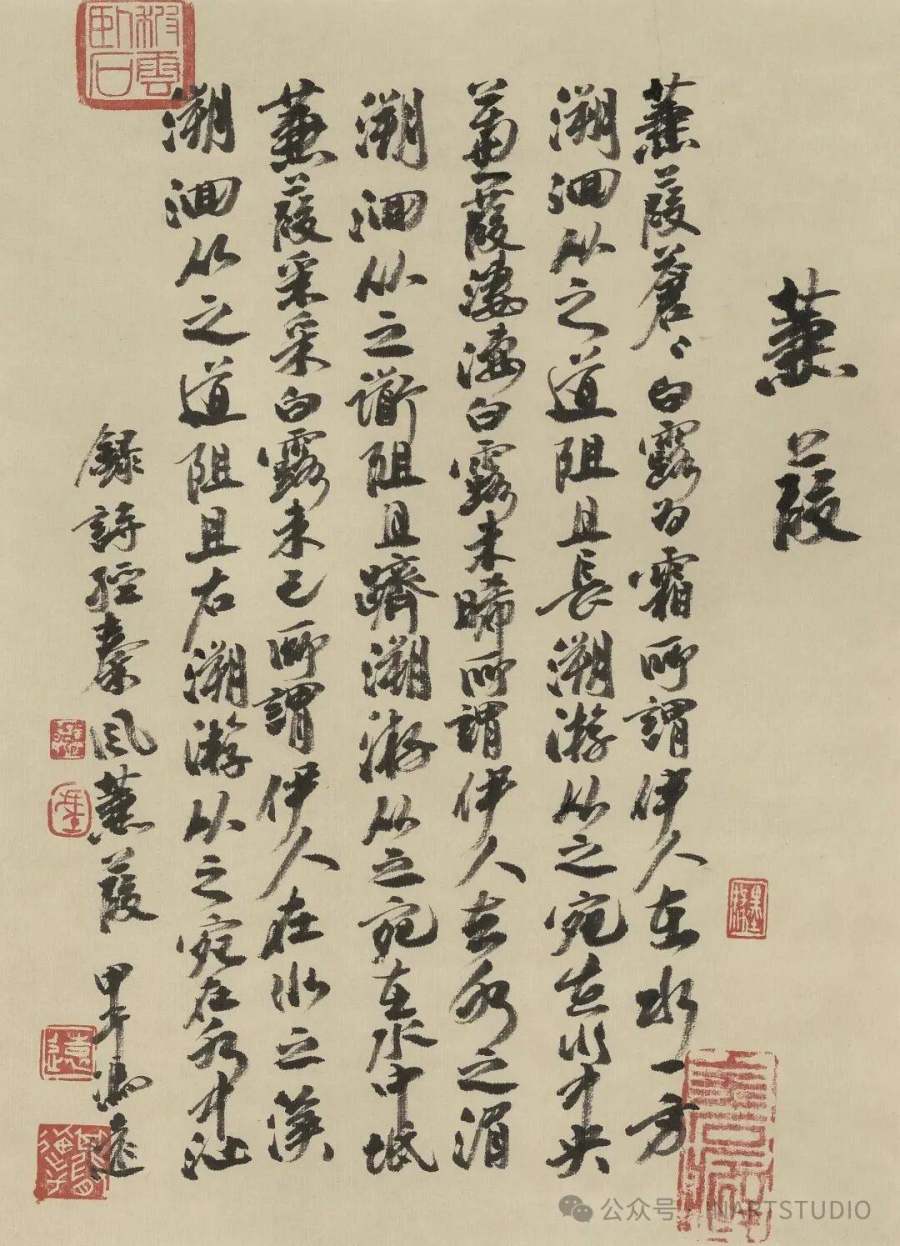 蒹葭
蒹葭蒼〻白露为霜所謂伊人在水一方
溯洄从之道阻且長溯游从之宛在水中央
蒹葭淒淒白露未晞所謂伊人在水之湄
溯洄从之道阻且躋溯游从之宛在水中坻
蒹葭采采白露未已所謂伊人在水之涘
溯洄从之道阻且右溯游从之宛在水中沚
錄詩經秦風蒹葭 甲午馮遠
雲臥石
遠
公众号 · INARTSTUDIO